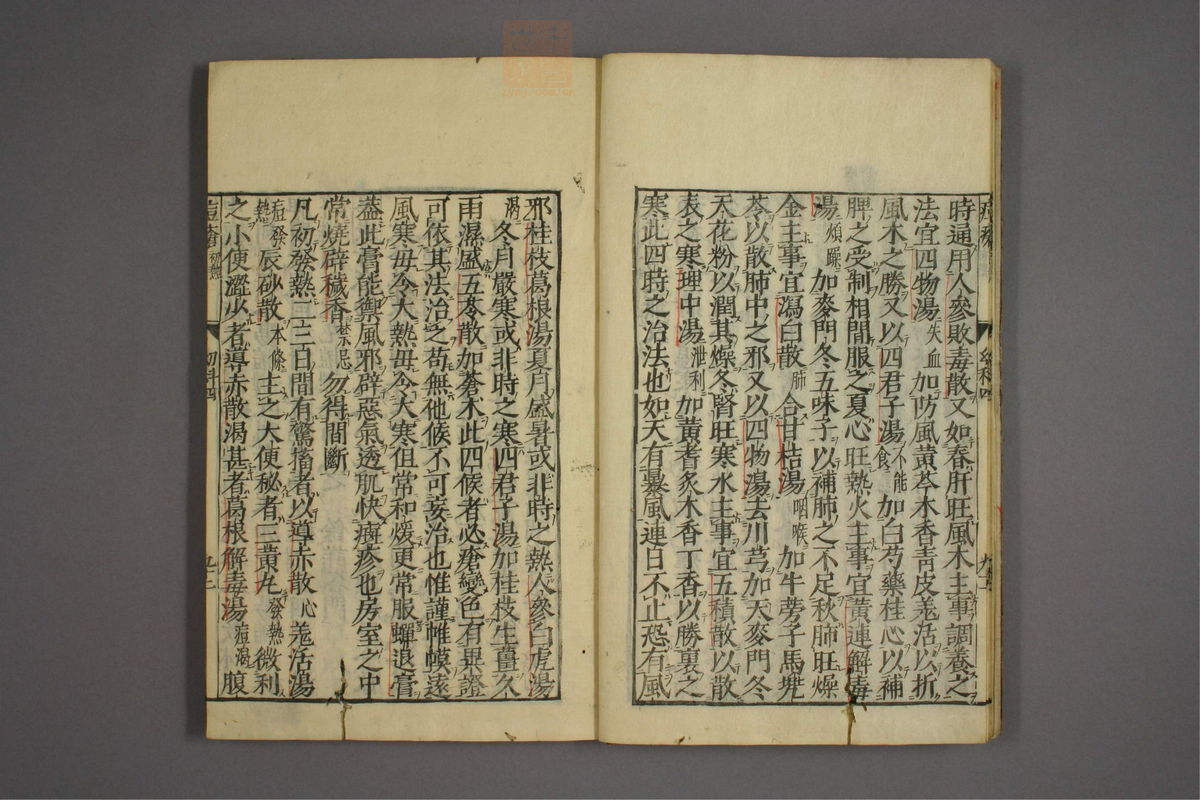 時通用人參敗毒散又如春肝旺風木主事調養之
法宜四物湯失血加防風黄芩木香青皮羗活以折
風木之勝又以四君子湯不能食加白芍藥桂心以補
脾之受制相間服之夏心旺熱火主事宜黄連解毒
湯煩躁加麥門冬五味子以補肺之不足秋肺旺燥
金主事宜瀉白散肺合甘桔湯咽喉加牛蒡子馬兠
苓以散肺中之邪又以四物湯去川芎加天麥門冬
天花粉以潤其燥冬腎旺寒水主事宜五積散以散
表之寒理中湯泄利加黄耆炙木香丁香以勝裏之
寒此四時之治法也如天有暴風連日不止恐有風
邪桂枝葛根湯夏月盛暑或非時之熱人參白虎湯
渴冬月嚴寒或非時之寒四君子湯加桂枝生薑久
雨濕盛五苓散加蒼术此四候者必瘡變色有異證
可依其法治之苟無他候不可妄治也惟謹帷幙遠
風寒毋令大熱毋令大寒但常和煖更常服蟬退膏
葢此膏能禦風邪辟惡氣透肌快癍疹也房室之中
常燒辟穢香禁忌勿得間斷
凡初發熱一二三日間有驚搐者以導赤散心羗活湯
痘發熱辰砂散本條主之大便秘者三黄丸發熱微利
之小便澀少者導赤散渴甚者葛根解毒湯痘渴腹
痘瘡 初熱 幼科四